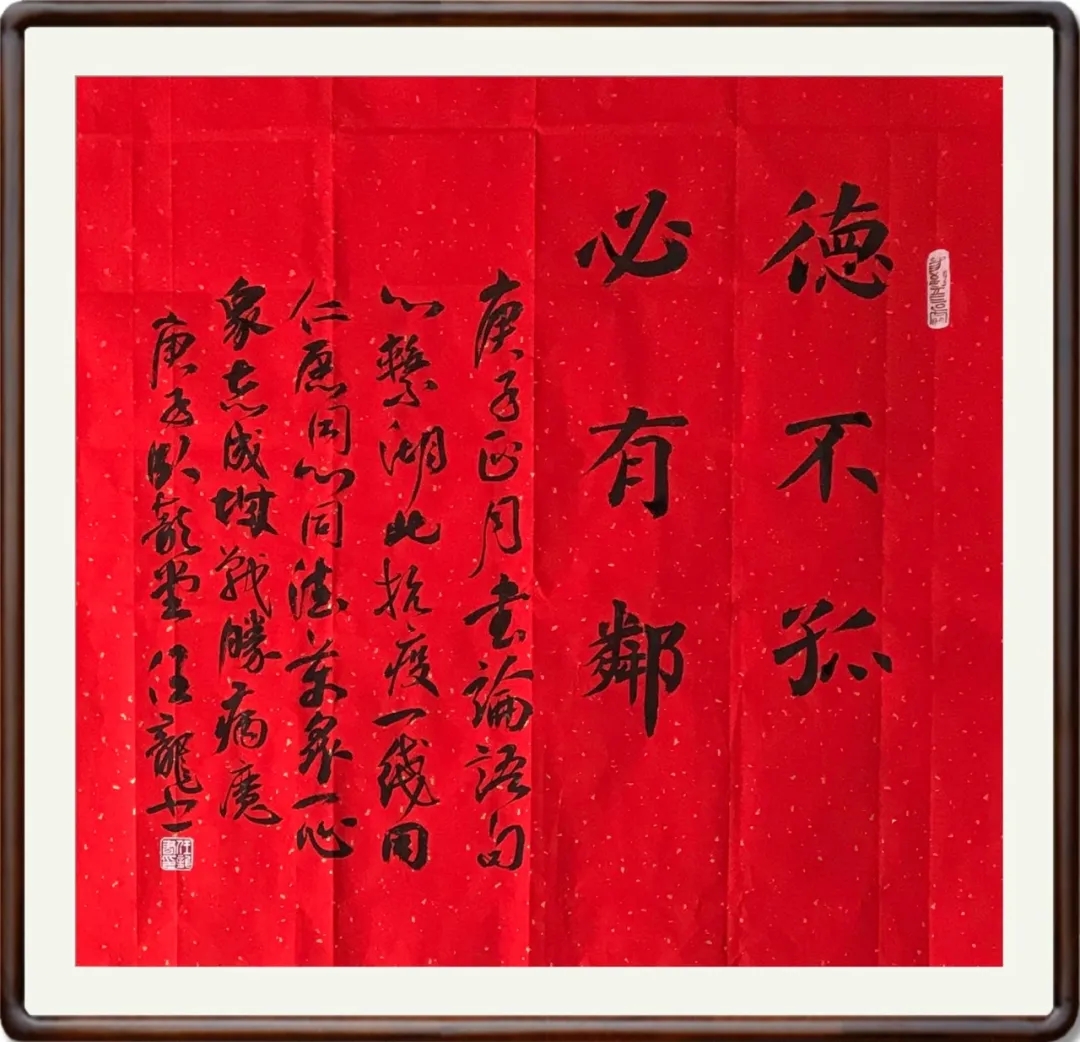 德不孤
必有鄰
庚子正月書論語句
心繫湖北抗疫一线用
仁愿同心同德萬眾一心
眾志成城戰勝病魔
庚子臥龍堂任龍書